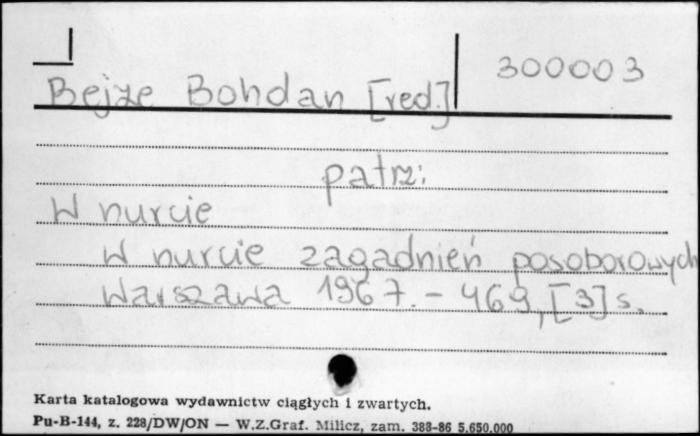 300003
Bejze Bohdan [red.]
patrz:
W nurcie
W nurcie zagadnień posoborowych
Warszawa 1967. - 469, [3] s.
Karta katalogowa wydawnictw ciągłych i zwartych.
Pu-B-144, z. 228/DW/ON — W.Z.Graf. Milicz, zam. 388-86 5.650.000